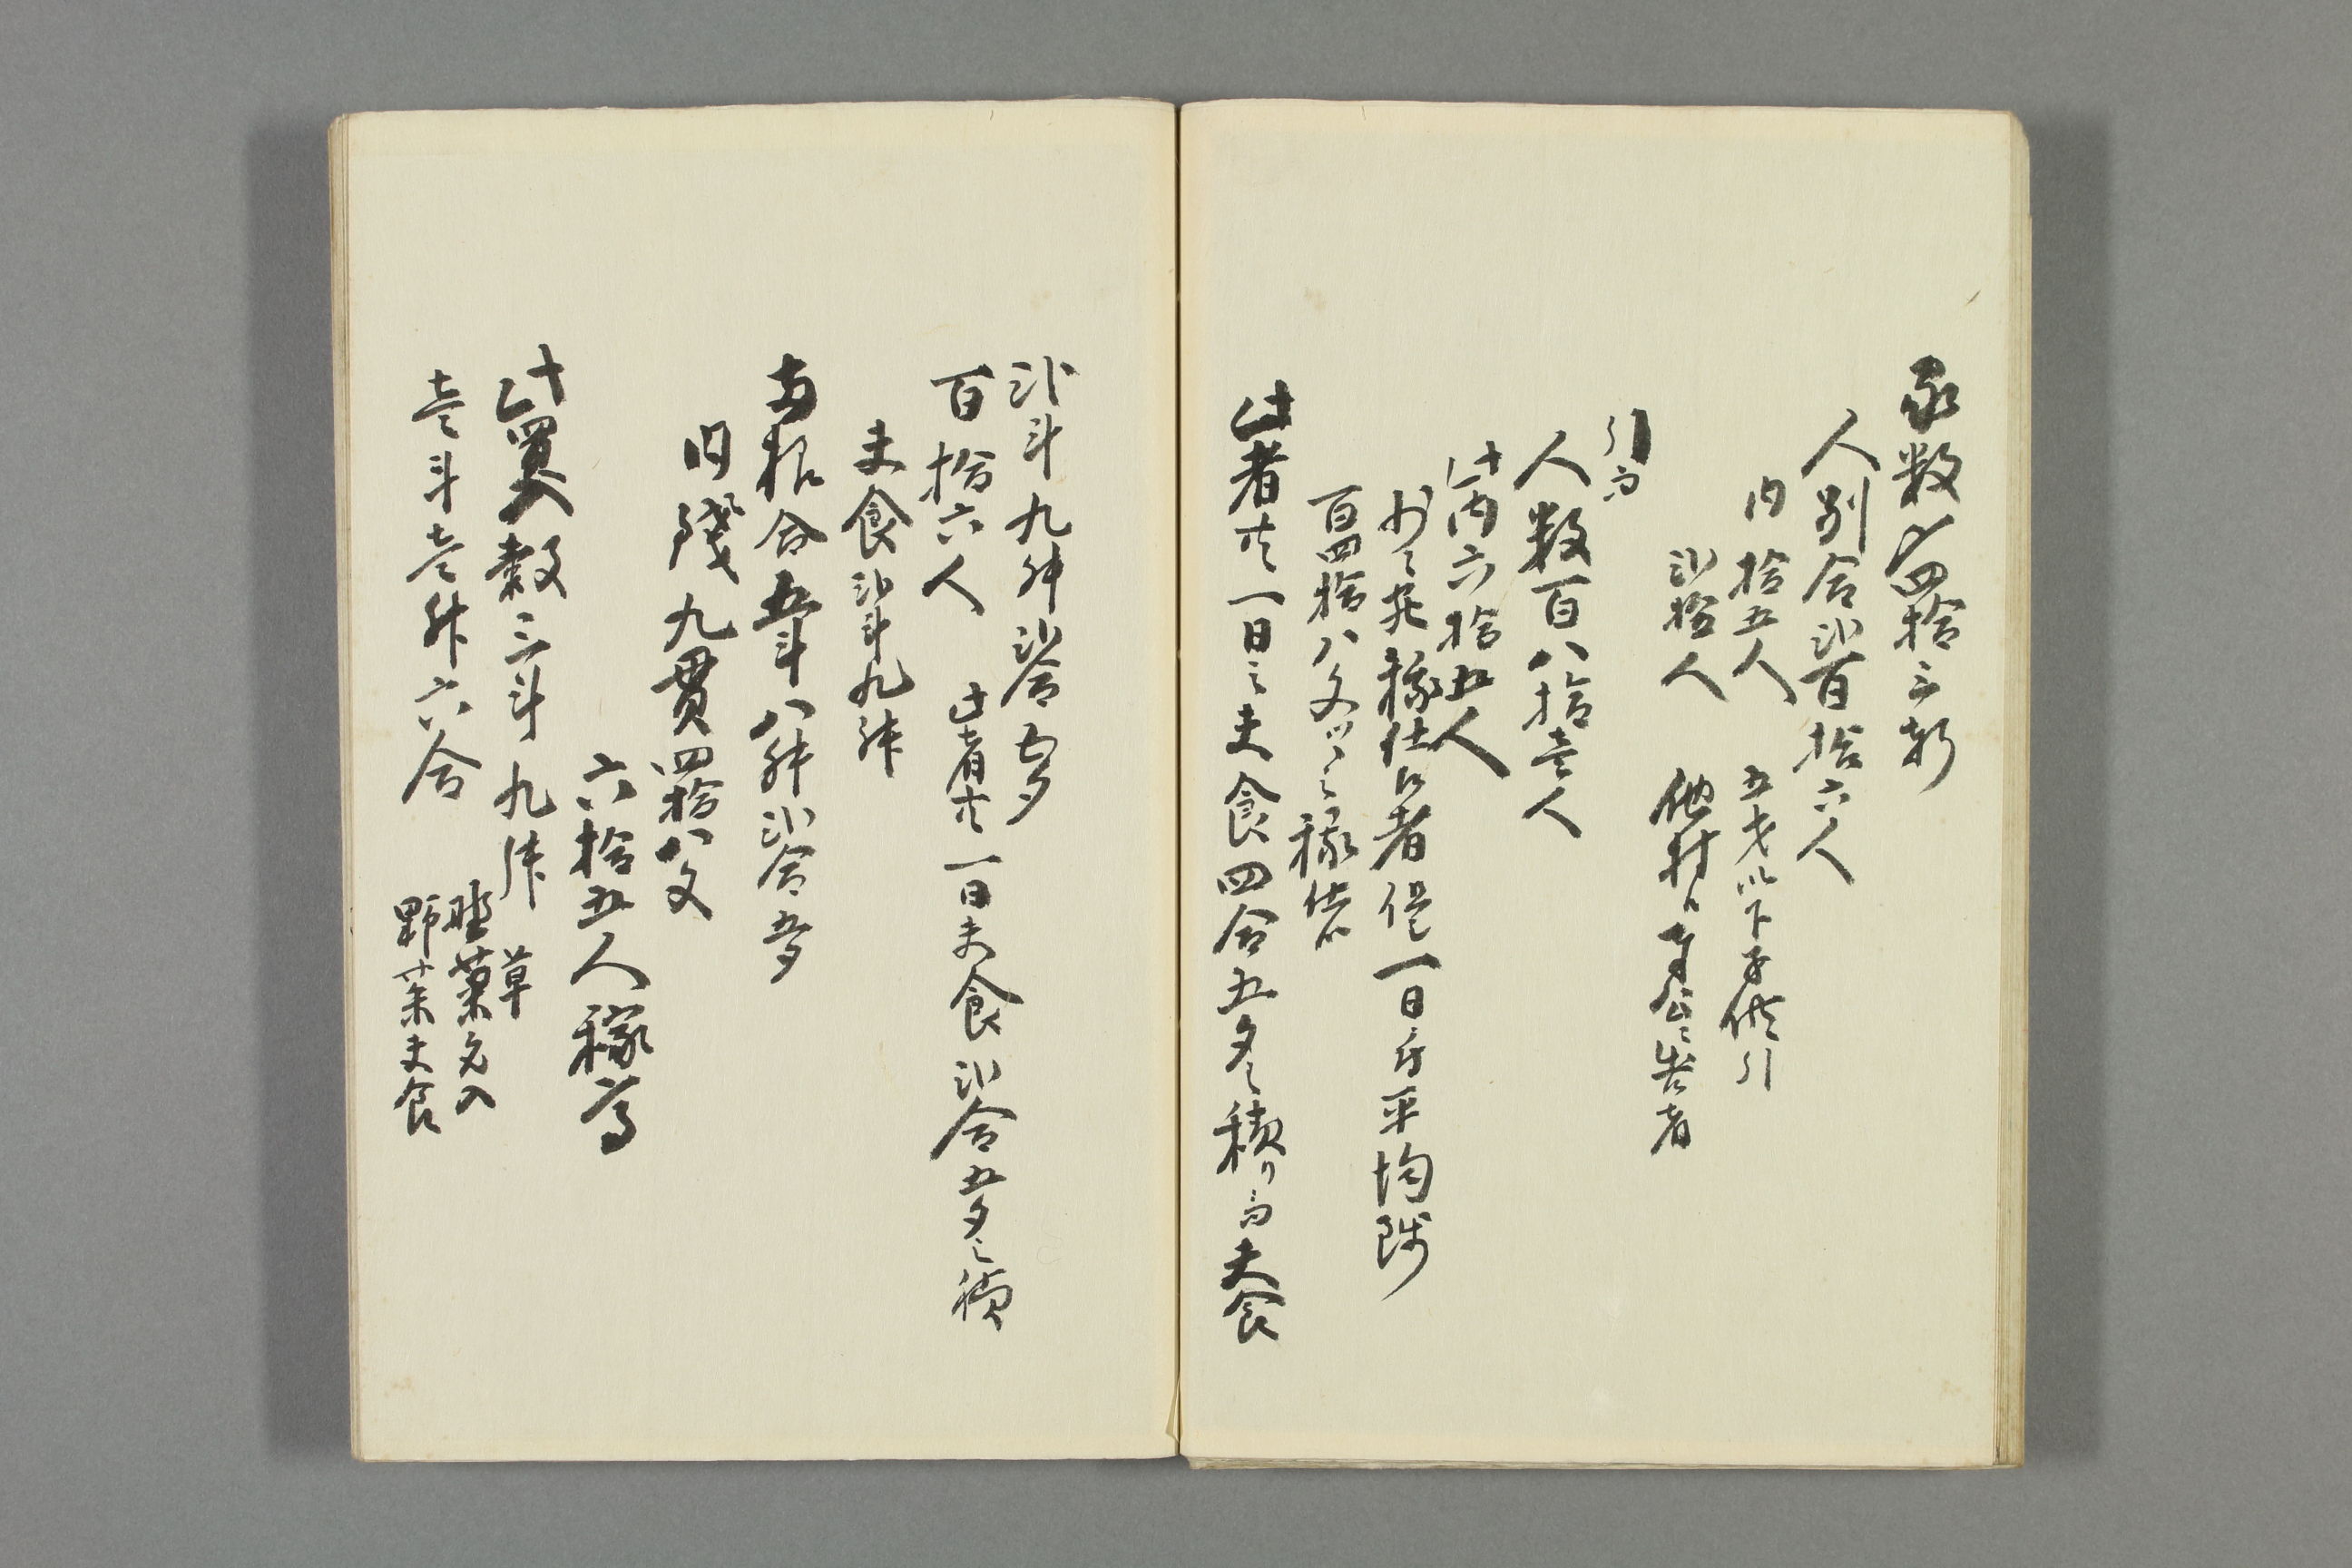 家数〆四拾三軒
人別合弐百拾六人
内 拾五人 五才以下子供引
弐拾人 他村江奉公ニ出者
引而
人数百八拾壱人
此内六拾五人
稼仕候者 一日平均
百四拾八文ツヽ之稼
此者共一日之夫食四合五夕之積り而夫食
弐斗九升弐合五夕
百拾六人 此者共一日夫食弐合五夕之積
夫食弐斗九升
両根合五斗八升弐合五夕
内 銭九貫四拾八文
六拾五人稼高
此買入穀三斗九升
壱斗壱升六合 草 野菜夫食